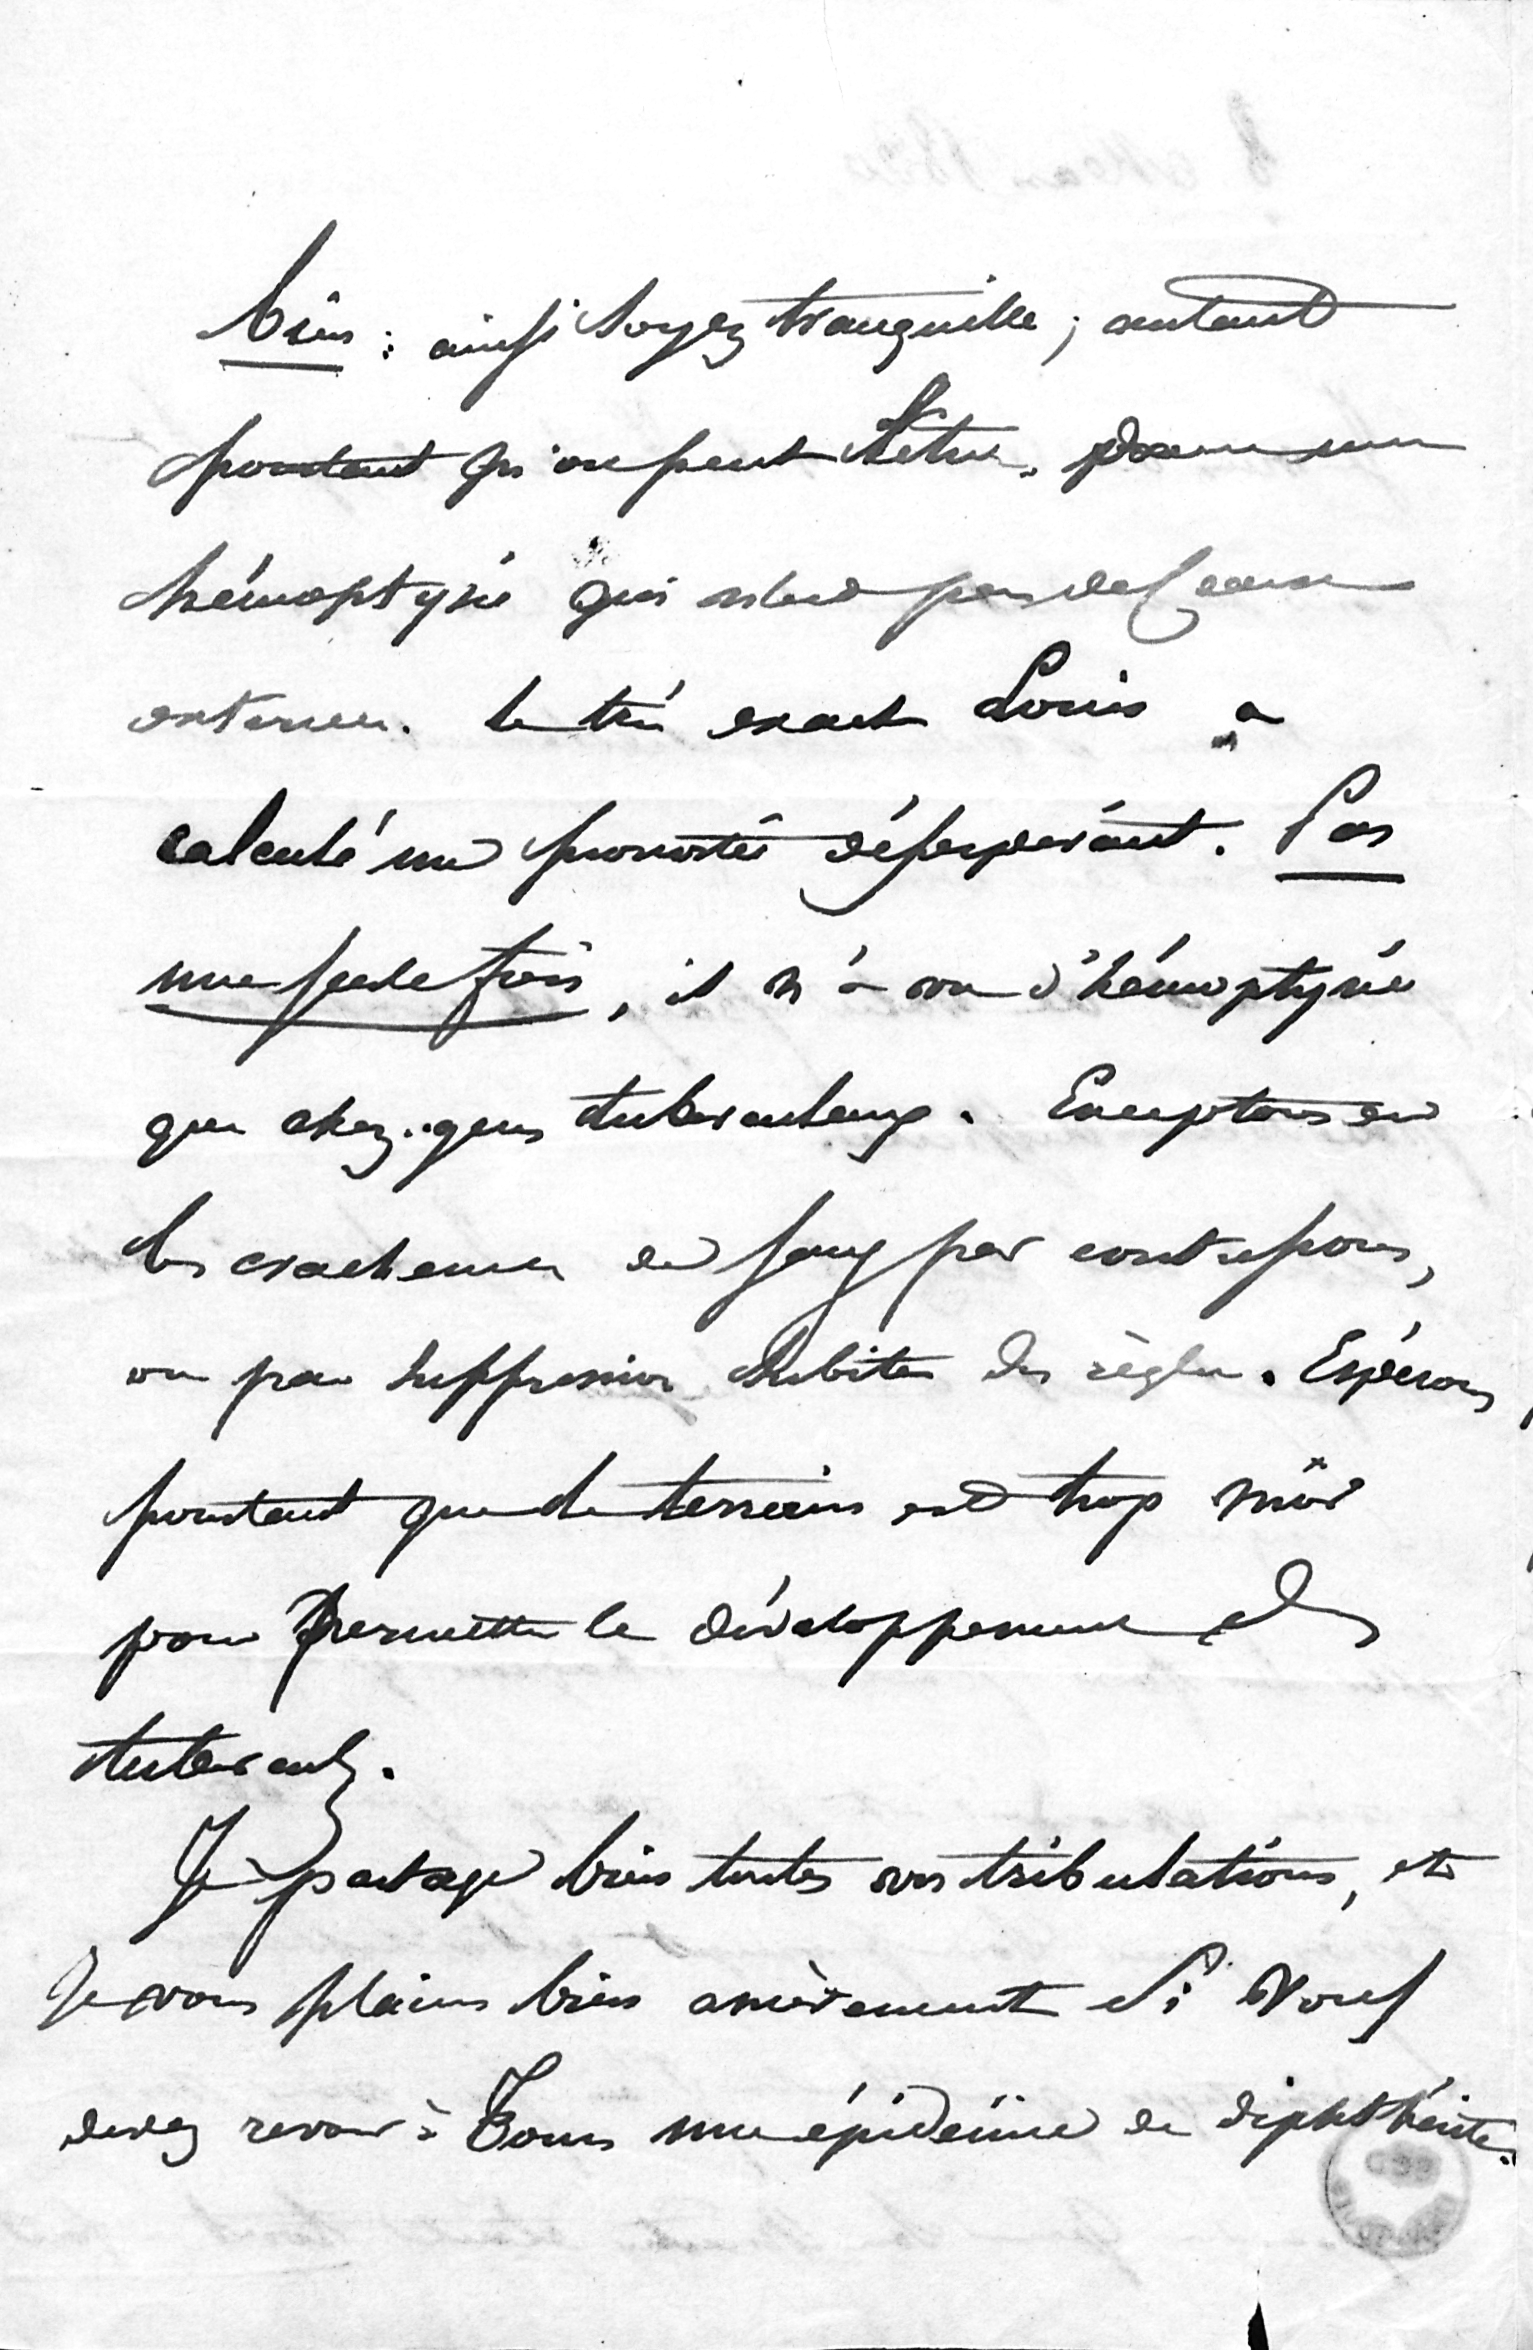 bien : ainsi soyez tranquille ; autant
pourtant qu'on peut l'être, dans une
hémoptysie qui n'est pas de cause
externe. Le très exact Louis a
calculé un pronostic désespérant. Pas
une seule fois, il n'a vu d'hémoptysie
que chez gens tuberculeux. Exceptons en
les crachemens de sang par contrepoids,
ou par suppression subite des règles. Espérons
pourtant que le terrain est trop mûr
pour permettre le développement des
tubercules.
Je partage bien toutes vos tribulations, et
je vous plains bien amèrement si vous
devez revoir à Tours une épidémie de diphthérite.